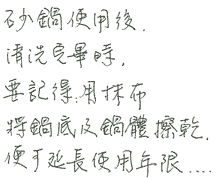 砂鍋使用後,
清洗完畢時,
要記得,用抹布
將鍋底及鍋體擦乾,
便可延長使用年限....